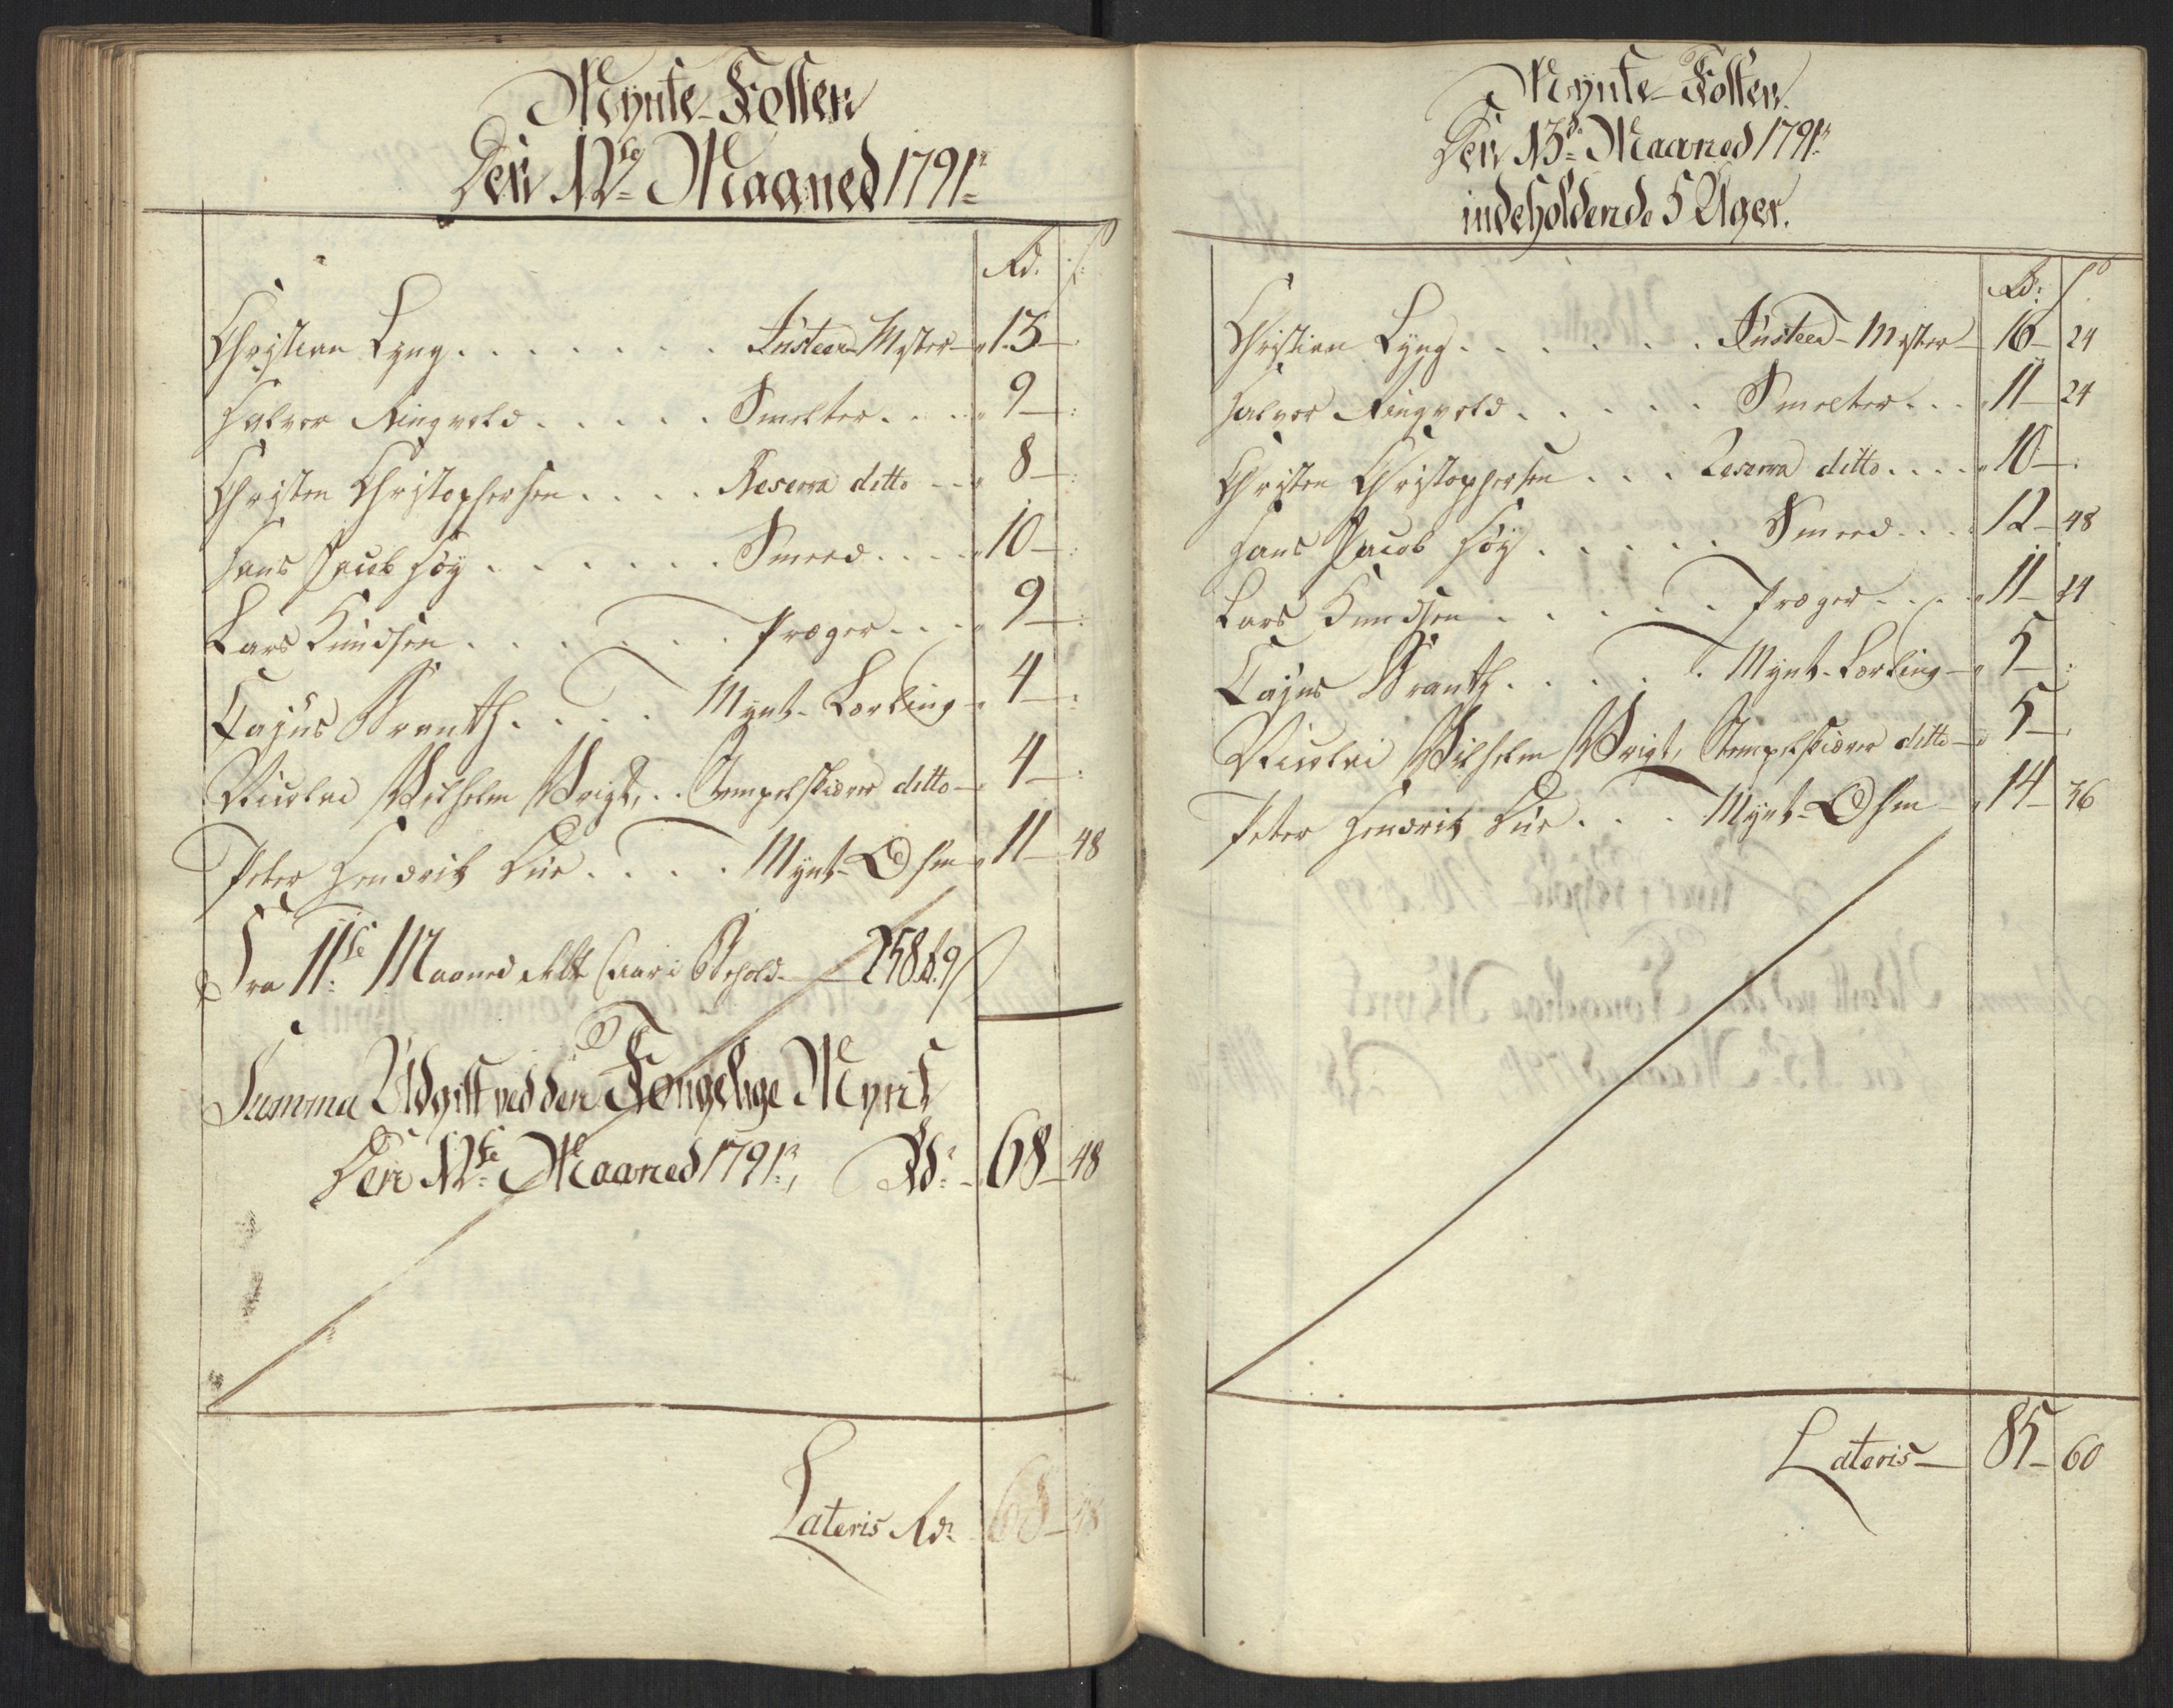 Mynte-Folket
Den 12te Maaned 1791
Rd. ß
Christian Lyng . . . . . . . Justeer-Mester 13
Halvor Ringvold . . . . . Smelter . . . 9
Christen Christophersen . . . . Reserva ditto 8
Hans Jacob Høy . . . . . . Smeed . . . 10
Lars Knudsen . . . . . . Præger . . . 9
Cajus Branth . . . . Mynt-Lærling 4
Nicolai Wilhelm Wrigt, . . Stempelskiærer ditto 4
Peter Hendrik Lüe . . . . Mynt- 11 48
Fra 11te Maaned Behold 258 9
Summa Udgift ved den Kongelige Mynt
Den 12te Maaned 1791, Rd. 68 48
Lateris Rd. 68 48
Mynte-Folket
Den 13de Maaned 1791
indeholdende 5 Uger.
Rd: ß
Christian Lyng . . . . . . Justeer-Mester 16 24
Halvor Ringvold . . . . . Smelter . . . 11 24
Christen Christophersen . . . Reserva ditto . . . . 10
Hans Jacob Høy . . . . . Smeed . . . 12 48
Lars Knudsen . . . . . Præger . . . 11 24
Cajus Branth . . . . . Mynt-Lærling 5
Nicolai Wilhelm Wrigt, Stempelskiærer ditto 5
Peter Hendrik Lüe . . . Mynt- 14 36
Lateris 85 60